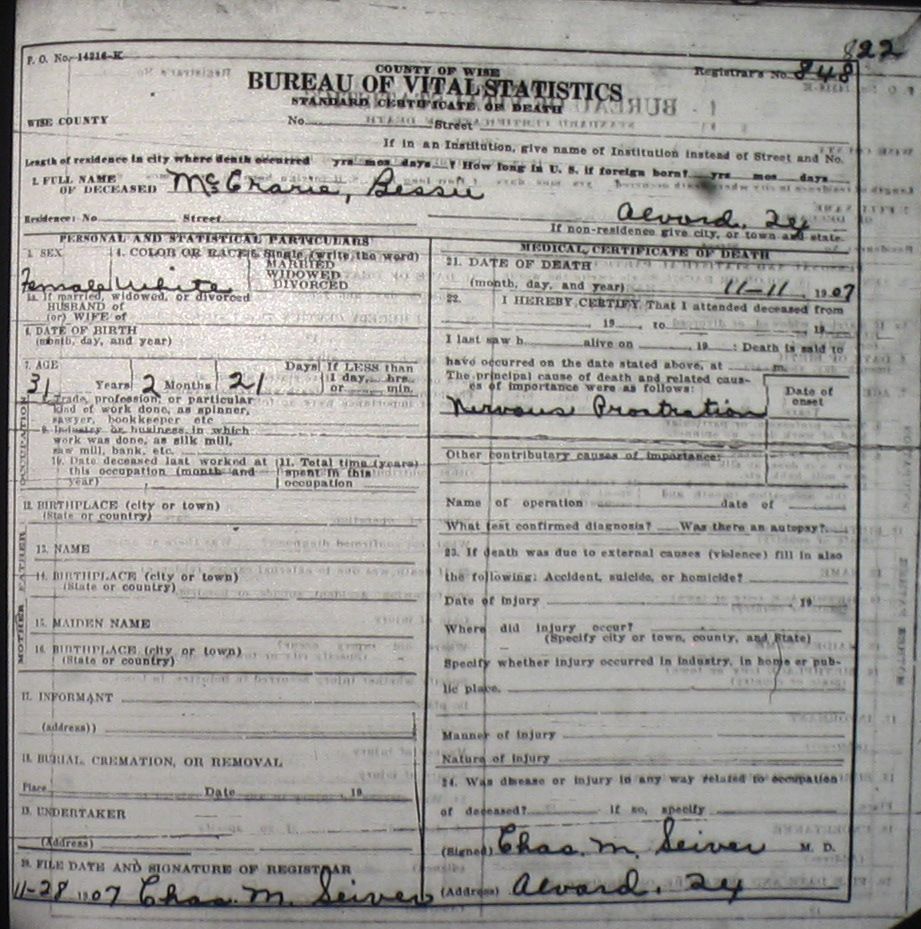 822
F. O. No. 14216-K
COUNTY OF WISE
Registrar's No. 848
BUREAU OF VITAL STATISTICS
STANDARD CERTIFICATE OF DEATH
WISE COUNTY No. Street
If in an Institution, give name of Institution instead of Street and No.
Length of residence in city where death occurred yrs mos days ? How long in U. S. if foreign born? yrs mos days
1. FULL NAME
OF DECEASED McCrarie, Bessie
Residence: No Street Alvord, Tex
If non-residence give city, or town and state.
PERSONAL AND STATISTICAL PARTICULARS
3. SEX 4. COLOR OR RACE 5. Single (write the word)
MARRIED
WIDOWED
DIVORCED
Female White
5a. If married, widowed, or divorced
HUSBAND of
(or) WIFE of
6. DATE OF BIRTH
(month, day, and year)
7. AGE Days If LESS than
31 Years 2 Months 21 1 day, hrs.
or min.
8. Trade, profession, or particular
kind of work done, as spinner,
sawyer, bookkeeper etc
9. Industry or business in which
work was done, as silk mill,
saw mill, bank, etc.
10. Date deceased last worked at
this occupation (month and
year)
11. Total time (years)
spent in this
occupation
OCCUPATION
12. BIRTHPLACE (city or town)
(State or country)
FATHER
13. NAME
14. BIRTHPLACE (city or town)
(State or country)
MOTHER
15. MAIDEN NAME
16. BIRTHPLACE (city or town)
(State or country)
17. INFORMANT
(address))
18. BURIAL, CREMATION, OR REMOVAL
Place Date , 19
19. UNDERTAKER
(Address)
20. FILE DATE AND SIGNATURE OF REGISTRAR
11-28 1907 Chas. M. Seiver
MEDICAL CERTIFICATE OF DEATH
21. DATE OF DEATH
(month, day, and year) 11-11, 1907
22. I HEREBY CERTIFY, That I attended deceased from
, 19 , to , 19
I last saw h alive on , 19 : Death is said to
have occurred on the date stated above, at m.
The principal cause of death and related caus-
es of importance were as follows:
Date of
onset
Nervous Prostration
Other contributary causes of importance:
Name of operation date of
What test confirmed diagnosis? Was there an autopsy?
23. If death was due to external causes (violence) fill in also
the following: Accident, suicide, or homicide?
Date of injury , 19
Where did injury occur?
(Specify city or town, county, and State)
Specify whether injury occurred in industry, in home or pub-
lic place.
Manner of injury
Nature of injury
24. Was disease or injury in any way related to occupation
of deceased? If so, specify
(Signed) Chas. M. Seiver M. D.
(Address) Alvord, Tex